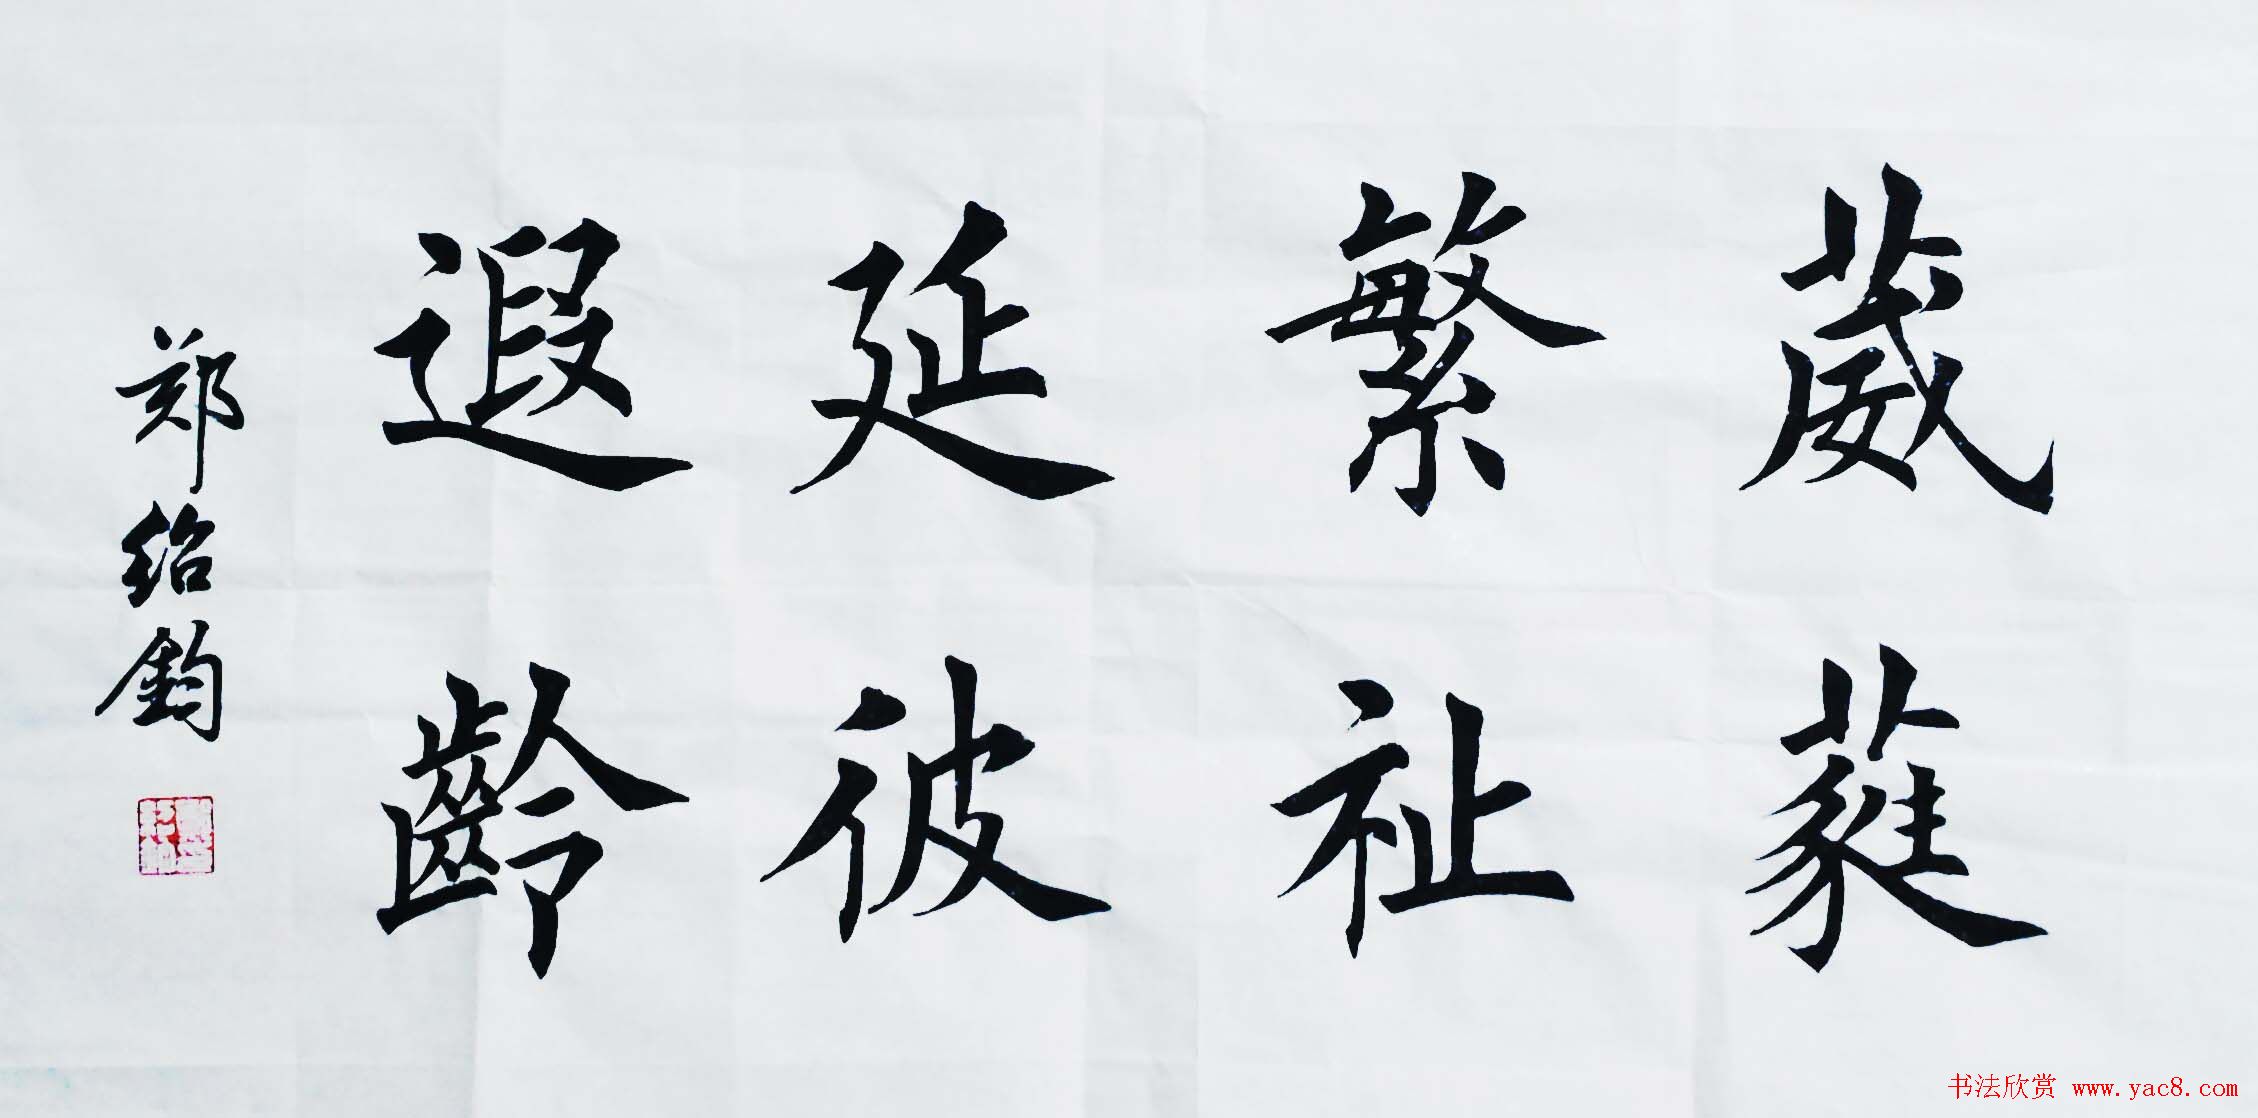 葳蕤
繁祉
延彼
遐齡
郑绍鈞
书法欣赏 www.yac8.com